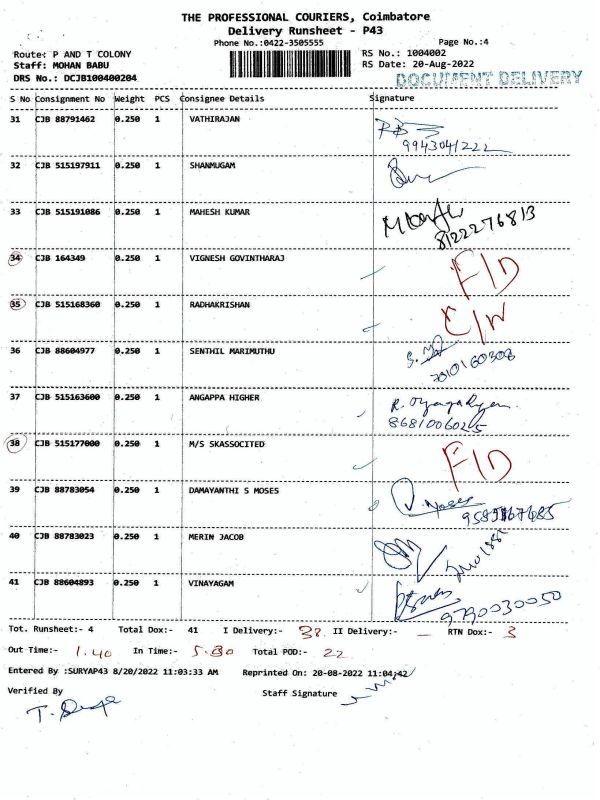 THE PROFESSIONAL COURIERS, Coimbatore
Delivery Runsheet - P43
Phone No.:0422-3505555 Page No.:4
Route: P AND T COLONY RS No.: 1004002
Staff: MOHAN BABU RS Date: 20-Aug-2022
DRS No.: DCJB100400204 DOCUMENT DELIVERY
S No Consignment No Weight PCS Consignee Details Signature
31 CJB 88791462 0.250 1 VATHIRAJAN
9943041222
32 CJB 515197911 0.250 1 SHANMUGAM
33 CJB 515191086 0.250 1 MAHESH KUMAR
8122276813
34 CJB 164349 0.250 1 VIGNESH GOVINTHARAJ F/D
35 CJB 515168360 0.250 1 RADHAKRISHAN C/N
36 CJB 88604977 0.250 1 SENTHIL MARIMUTHU
37 CJB 515163600 0.250 1 ANGAPPA HIGHER
8681006025
38 CJB 515177000 0.250 1 M/S SKASSOCITED F/D
39 CJB 88783054 0.250 1 DAMAYANTHI S MOSES
40 CJB 88783023 0.250 1 MERIN JACOB
41 CJB 88604893 0.250 1 VINAYAGAM
9790030050
Tot. Runsheet:- 4 Total Dox:- 41 I Delivery:- 38 II Delivery:- — RTN Dox:- 3
Out Time:- 1.40 In Time:- 5.30 Total POD:- 22
Entered By :SURYAP43 8/20/2022 11:03:33 AM Reprinted On: 20-08-2022 11:04:42
Verified By Staff Signature